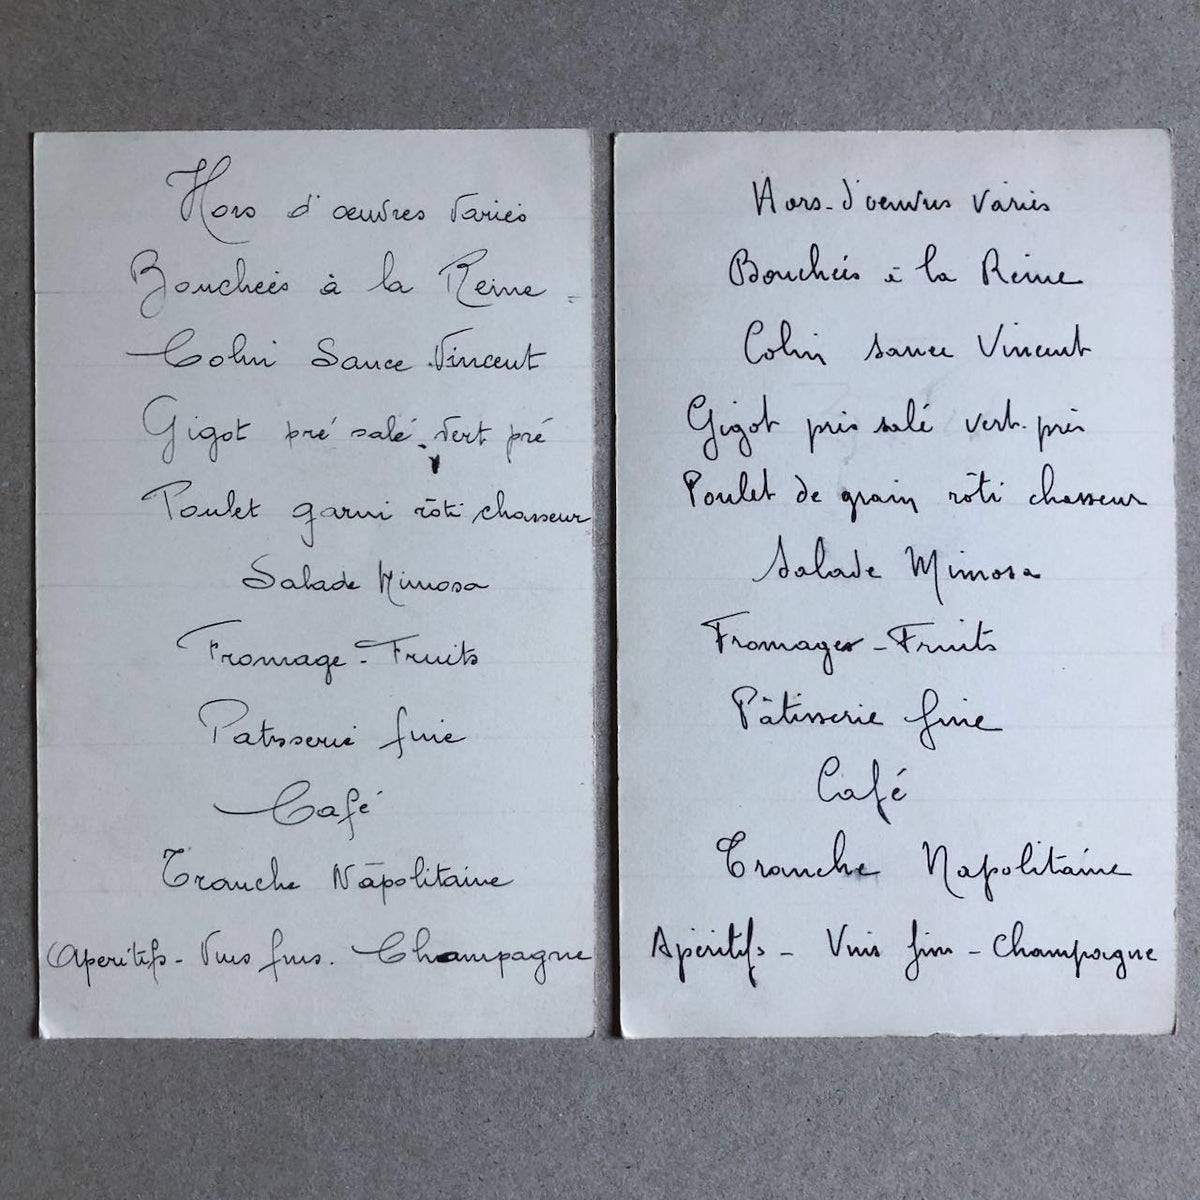 Hors d'oeuvres variés
Bouchées à la Reine
Colin Sauce Vincent
Gigot pré salé vert pré
Poulet garni rôti chasseur
Salade Mimosa
Fromage - Fruits
Patisserie fine
Café
Tranche Napolitaine
Apéritifs - Vins fins. Champagne
Hors-d'oeuvres variés
Bouchées à la Reine
Colin sauce Vincent
Gigot prés salé vert-prés
Poulet de grain rôti chasseur
Salade Mimosa
Fromages - Fruits
Pâtisserie fine
Café
Tranche Napolitaine
Apéritifs - Vins fins - Champagne